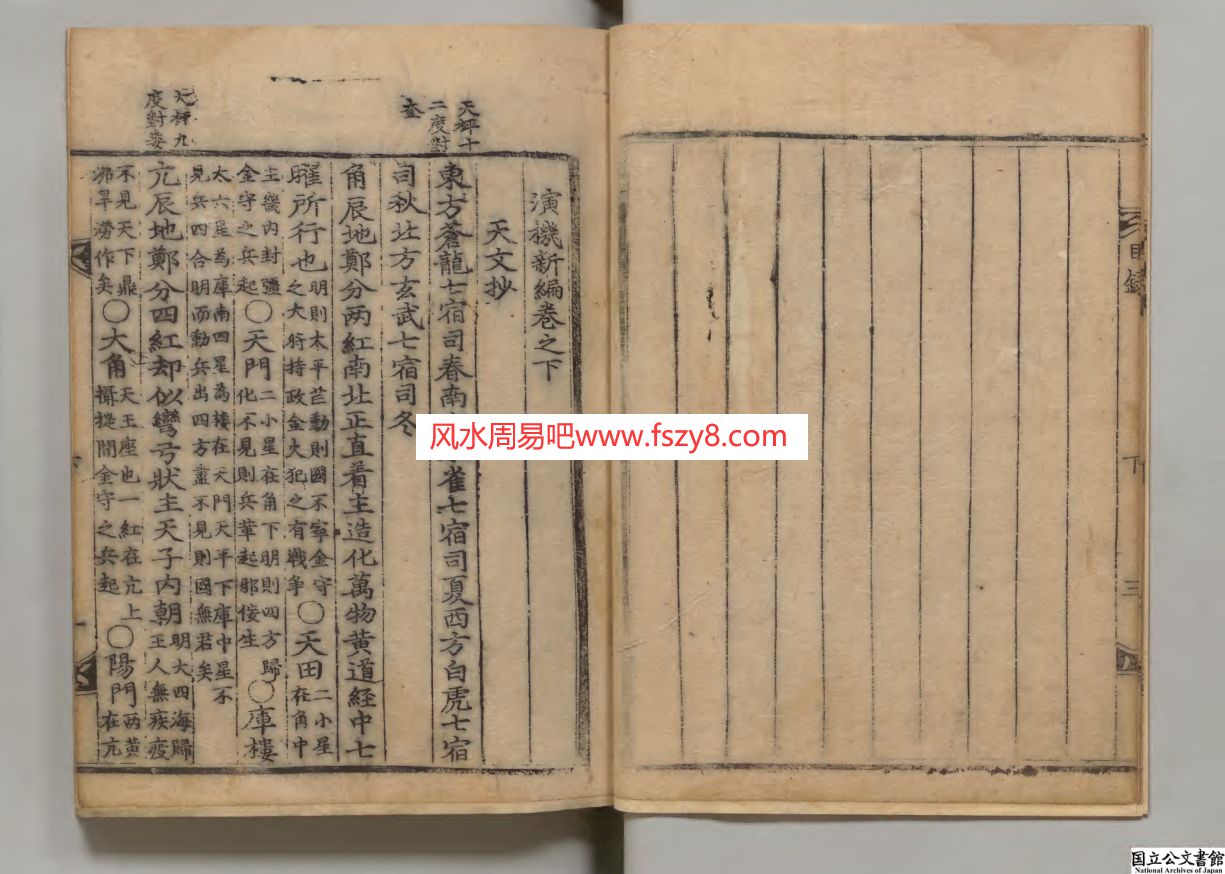 目錄
下
三
天秤十
二度對
奎
演機新編卷之下
天文抄
東方蒼龍七宿司春南雀七宿司夏西方白虎七宿
司秋北方玄武七宿司冬
角辰地鄭分两紅南北正直着主造化萬物黄道經中七
曜所行也明則太平芒動則國不寧金守之大將持政金火犯之有戰爭〇天田二小星在角中
主畿內封疆金守之兵起〇天門二小星在角下明則四方歸化不見則兵革起邪佞生〇庫樓
太六星為庫南四星為樓在天門天平下庫中星不見兵四合明而動兵出四方盡不見則國無君矣
天秤九
度對婁
亢辰地鄭分四紅却似彎弓狀主天子內朝明大四海歸王人無疾疫
不見天下鼎沸旱澇作矣〇大角天王座也一紅在亢上攝提間金守之兵起〇陽門两黄在亢
风水周易吧www.fszy8.com
国立公文書館
National Archives of Japan